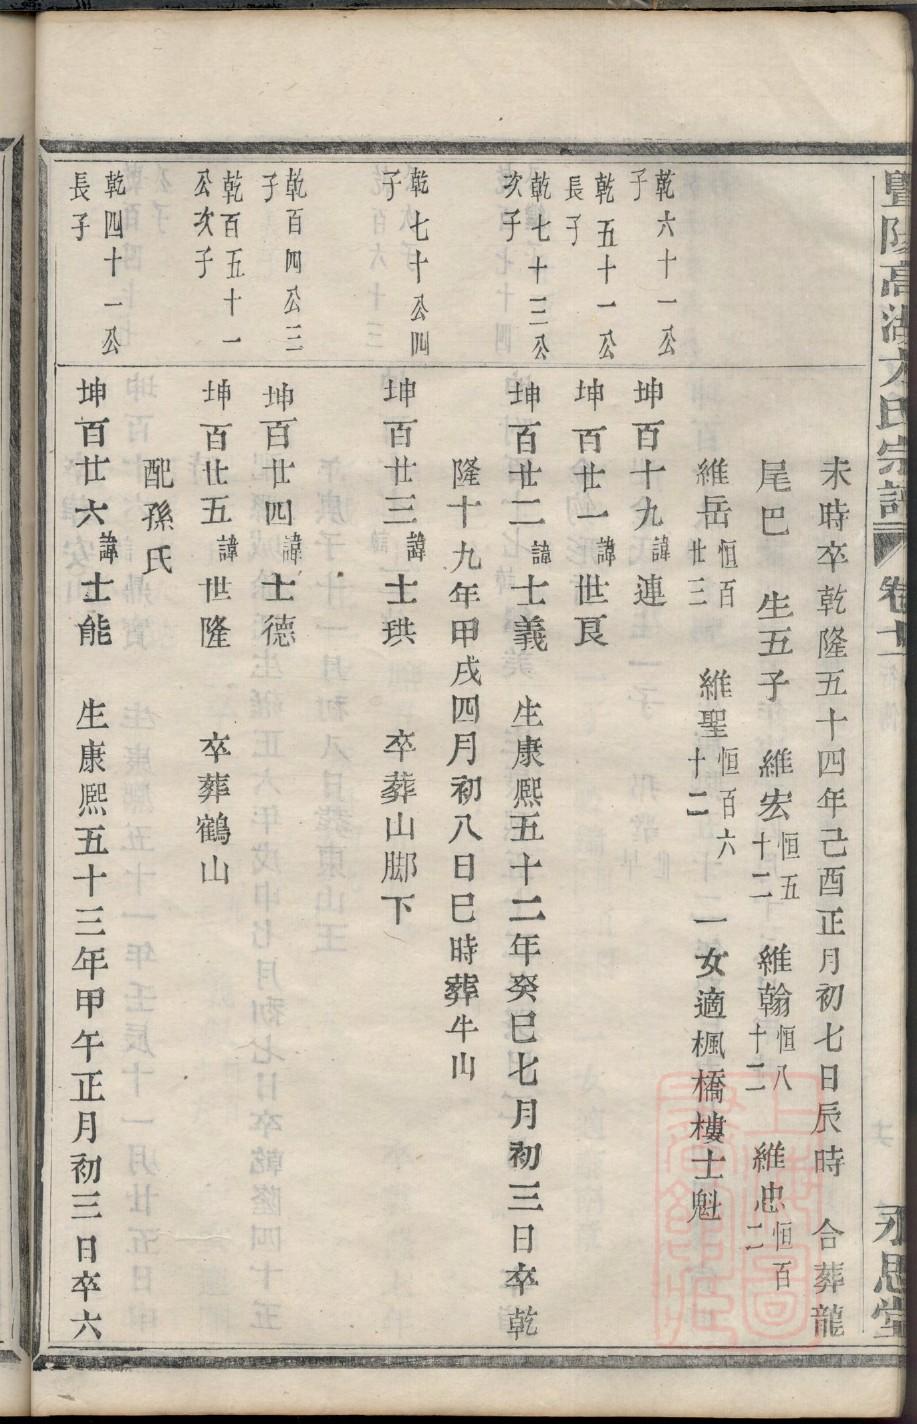 暨陽高湖方氏宗譜 卷十二 永思堂
未時卒乾隆五十四年己酉正月初七日辰時 合葬龍
尾巴 生五子 維宏恒五十二 維翰恒八十二 維忠恒百二
維岳恒百廿三 維聖恒百六十二 一女適楓橋樓士魁
乾六十一公子 坤百十九諱連
乾五十一公長子 坤百廿一諱世良
乾七十三公次子 坤百廿二諱士義 生康熙五十二年癸巳七月初三日卒乾
隆十九年甲戌四月初八日巳時葬牛山
乾七十公四子 坤百廿三諱士珙 卒葬山脚下
乾百四公三子 坤百廿四諱士德
乾百五十一公次子 坤百廿五諱世隆 卒葬鶴山
配孫氏
乾四十一公長子 坤百廿六諱士能 生康熙五十三年甲午正月初三日卒六